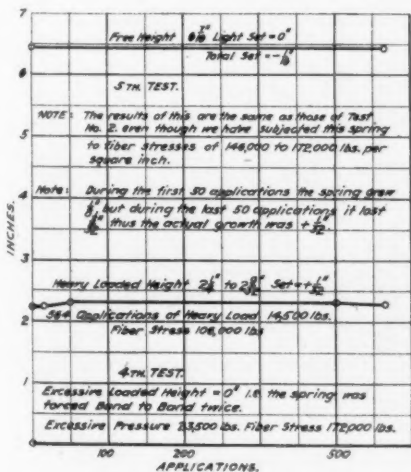 7
Free Height 6 7/16" Light Set = 0"
Total Set = -1/16"
6
5TH. TEST.
NOTE: The results of this are the same as those of Test
No. 2. even though we have subjected this spring
5
to fiber stresses of 146,000 to 172,000 lbs. per
square inch.
Note: During the first 50 applications the spring grew
4
but during the last 50 applications it lost
thus the actual growth was + 1/32"
3
INCHES.
Heavy Loaded Height 2 1/4" to 2 9/32" Set = + 1/32"
2
564 Applications of Heavy Load 14,500 lbs.
Fiber Stress 106,000 lbs
4TH. TEST.
1
Excessive Loaded Height = 0" i.e. the spring was
forced Band to Band twice.
Excessive Pressure 23,500 lbs. Fiber Stress 172,000 lbs.
0
100 200 500
APPLICATIONS.